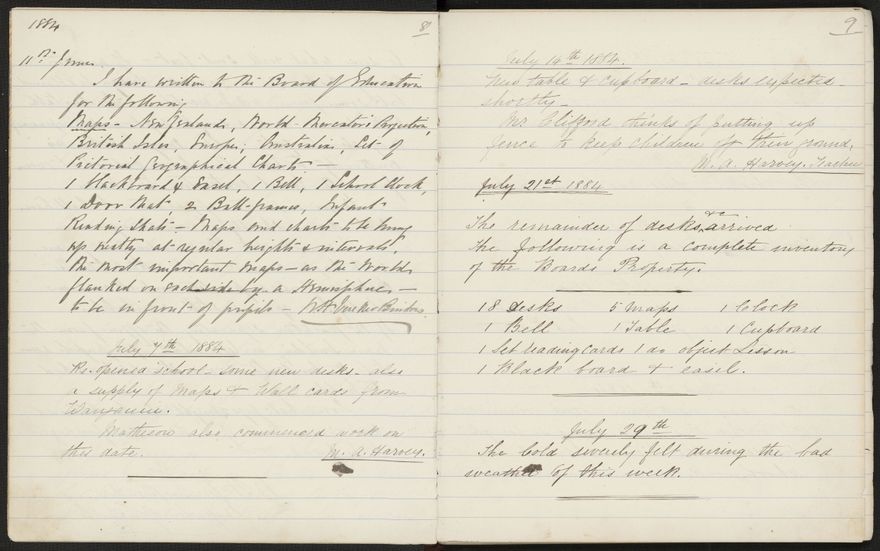 1884
8
11th June
I have written to the Board of Education
for the following
Maps - New Zealand, World Mercator's Projection,
British Isles, Europe, Australia, Set of
Pictorial Geographical Charts -
1 blackboard & Easel, 1 Bell, 1 School Clock,
1 Door Mat, 2 Ball-frames, Infant
Reading Sheets - Maps and charts to be hung
up neatly at regular heights & intervals,
the most important maps - as the World
flanked on each side by a Hemisphere -
to be in front of pupils -
July 7th 1884
Re-opened school - some new desks - also
a supply of Maps & Wall cards from
Wanganui.
Matheson also commenced work on
this date.
M. A. Harvey.
9
July 14th 1884.
New table & cupboard - desks expected
shortly -
Mr Clifford thinks of putting up
fence to keep children off their ground.
M. A. Harvey. Teacher
July 21st 1884
The remainder of desks &c arrived
the following is a complete inventory
of the Boards Property.
18 desks 5 Maps 1 Clock
1 Bell 1 Table 1 Cupboard
1 Set leading cards 1 do object Lesson
1 Black board & easel.
July 29th
The Cold severely felt during the bad
weather of this week.